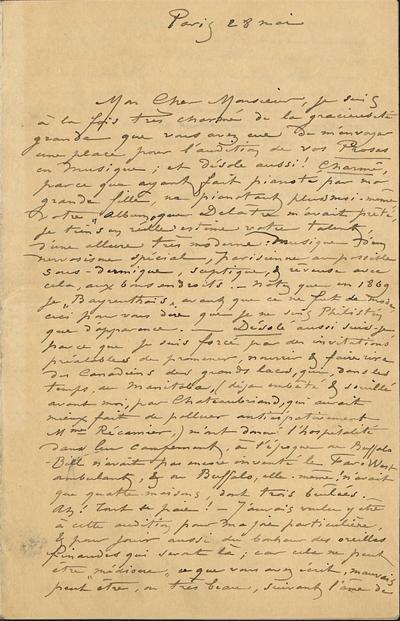 Paris 28 mai
Mon Cher Monsieur, je suis
à la fois très charmé de la gracieuseté
grande que vous avez eue de m'envoyer
une place pour l'audition de vos Proses
en Musique ; et désolé aussi ! Charmé,
parce que ayant fait pianoter par ma
grande fille, ne pianotant plus moi-même,
votre "Album que Delatre m'avait prêté,
je tiens en réelle estime votre talent,
d'une allure très moderne : musique d'un
nervosisme spécial, parisienne au possible
sous-dermique, sceptique, & rêveuse avec
cela, aux bons endroits. — Notez que en 1869
je "Bayreuthais" avant que ce ne fut de mode,
ceci pour vous dire que je ne suis Philistin
que d'apparence. — Désolé aussi suis-je
parce que je suis forcé par des invitations
préalables de promener, nourrir & faire rire
des Canadiens des grands lacs, qui, dans les
temps, au Manitoba, (déjà embêté & souillé
avant moi, par Chateaubriand, qui aurait
mieux fait de polluer anticipativement
Mme Récamier,) m'ont donné l'hospitalité
dans leur campement, à l'époque où Buffalo
Bill n'avait pas encore inventé le Far-West
ambulant, & où Buffalo, elle-même, n'avait
que quatre maisons, dont trois
Ah ! tout se paie ! — J'aurais voulu y être
à cette audition pour ma joie particulière,
& pour jouir aussi du bonheur des oreilles
friandes qui seront là ; car cela ne peut
être "médiocre", ce que vous avez écrit, mauvais
peut être, ou très beau, suivant l'âme de